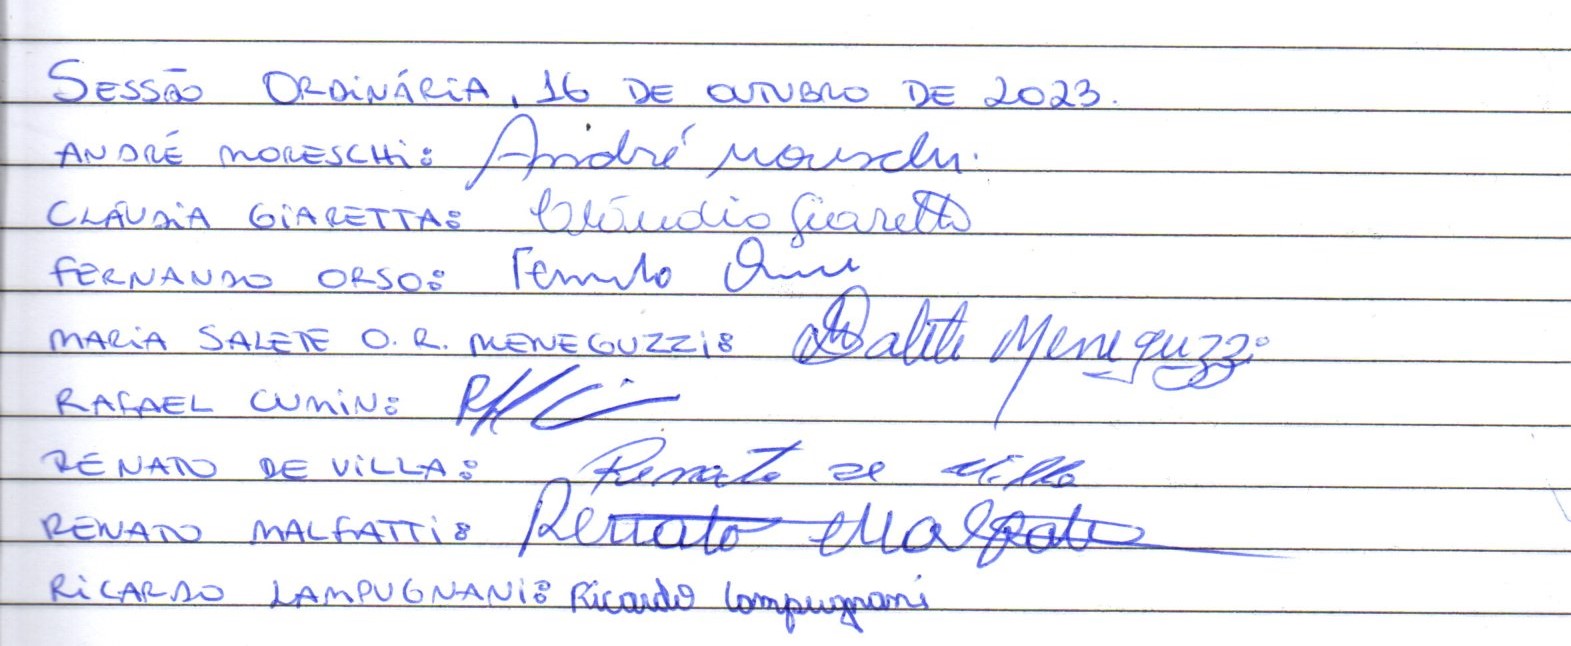 SESSÃO ORDINÁRIA, 16 DE OUTUBRO DE 2023.
ANDRÉ MORESCHI: André Moreschi.
CLÁUDIA GIARETTA: Cláudia Giaretta
FERNANDO ORSO: Fernando Orso
MARIA SALETE O. R. MENEGUZZI: MSalete Meneguzzi
RAFAEL CUMIN:
RENATO DE VILLA: Renato de Villa
RENATO MALFATTI: Renato Malfatti
RICARDO LAMPUGNANI: Ricardo Lampugnani